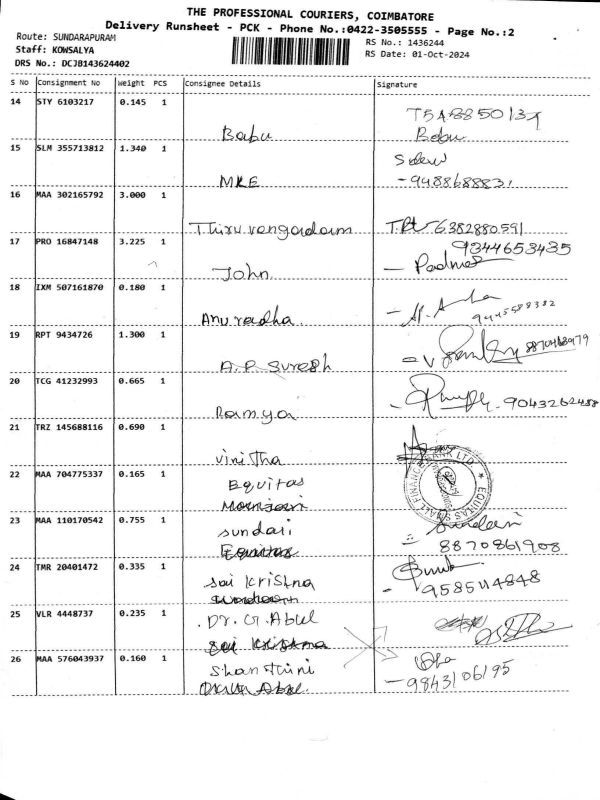 THE PROFESSIONAL COURIERS, COIMBATORE
Delivery Runsheet - PCK - Phone No.:0422-3505555 - Page No.:2
Route: SUNDARAPURAM
RS No.: 1436244
Staff: KOWSALYA
RS Date: 01-Oct-2024
DRS No.: DCJB143624402
S No Consignment No Weight PCS Consignee Details Signature
14 STY 6103217 0.145 1
Babu Babu
15 SLM 355713812 1.340 1
MKE - 9488688831
16 MAA 302165792 3.000 1
Thiruvengadam 6382880591
17 PRO 16847148 3.225 1 9344653435
John - Padma
18 IXM 507161870 0.180 1
Anuradha 9445588382
19 RPT 9434726 1.300 1
A.P Suresh
20 TCG 41232993 0.665 1
Ramya - 9043262488
21 TRZ 145688116 0.690 1
Vinitha
22 MAA 704775337 0.165 1
Equitas
EQUITAS SMALL FINANCE BANK LTD
23 MAA 110170542 0.755 1
Sundari Sundari
Equitas 8870861908
24 TMR 20401472 0.335 1
Sai Krishna - 9585114848
25 VLR 4448737 0.235 1
Dr. G. Abul
Sai Krishna
26 MAA 576043937 0.160 1
Shanthini - 9843106195